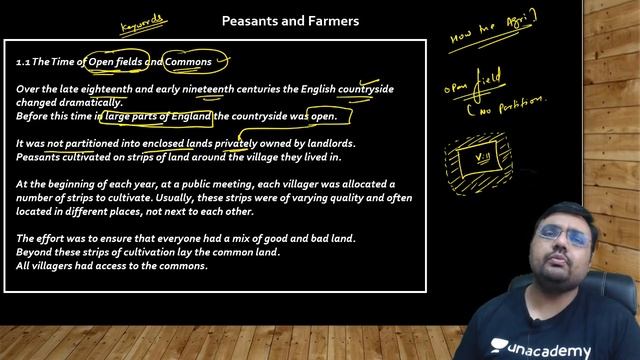 Keywords
Peasants and Farmers
How the Agri ?
1.1 The Time of Open fields and Commons
Over the late eighteenth and early nineteenth centuries the English countryside
changed dramatically.
Before this time in large parts of England the countryside was open.
It was not partitioned into enclosed lands privately owned by landlords.
Peasants cultivated on strips of land around the village they lived in.
At the beginning of each year, at a public meeting, each villager was allocated a
number of strips to cultivate. Usually, these strips were of varying quality and often
located in different places, not next to each other.
The effort was to ensure that everyone had a mix of good and bad land.
Beyond these strips of cultivation lay the common land.
All villagers had access to the commons.
open field
( No Partition.
Vill
unacademy